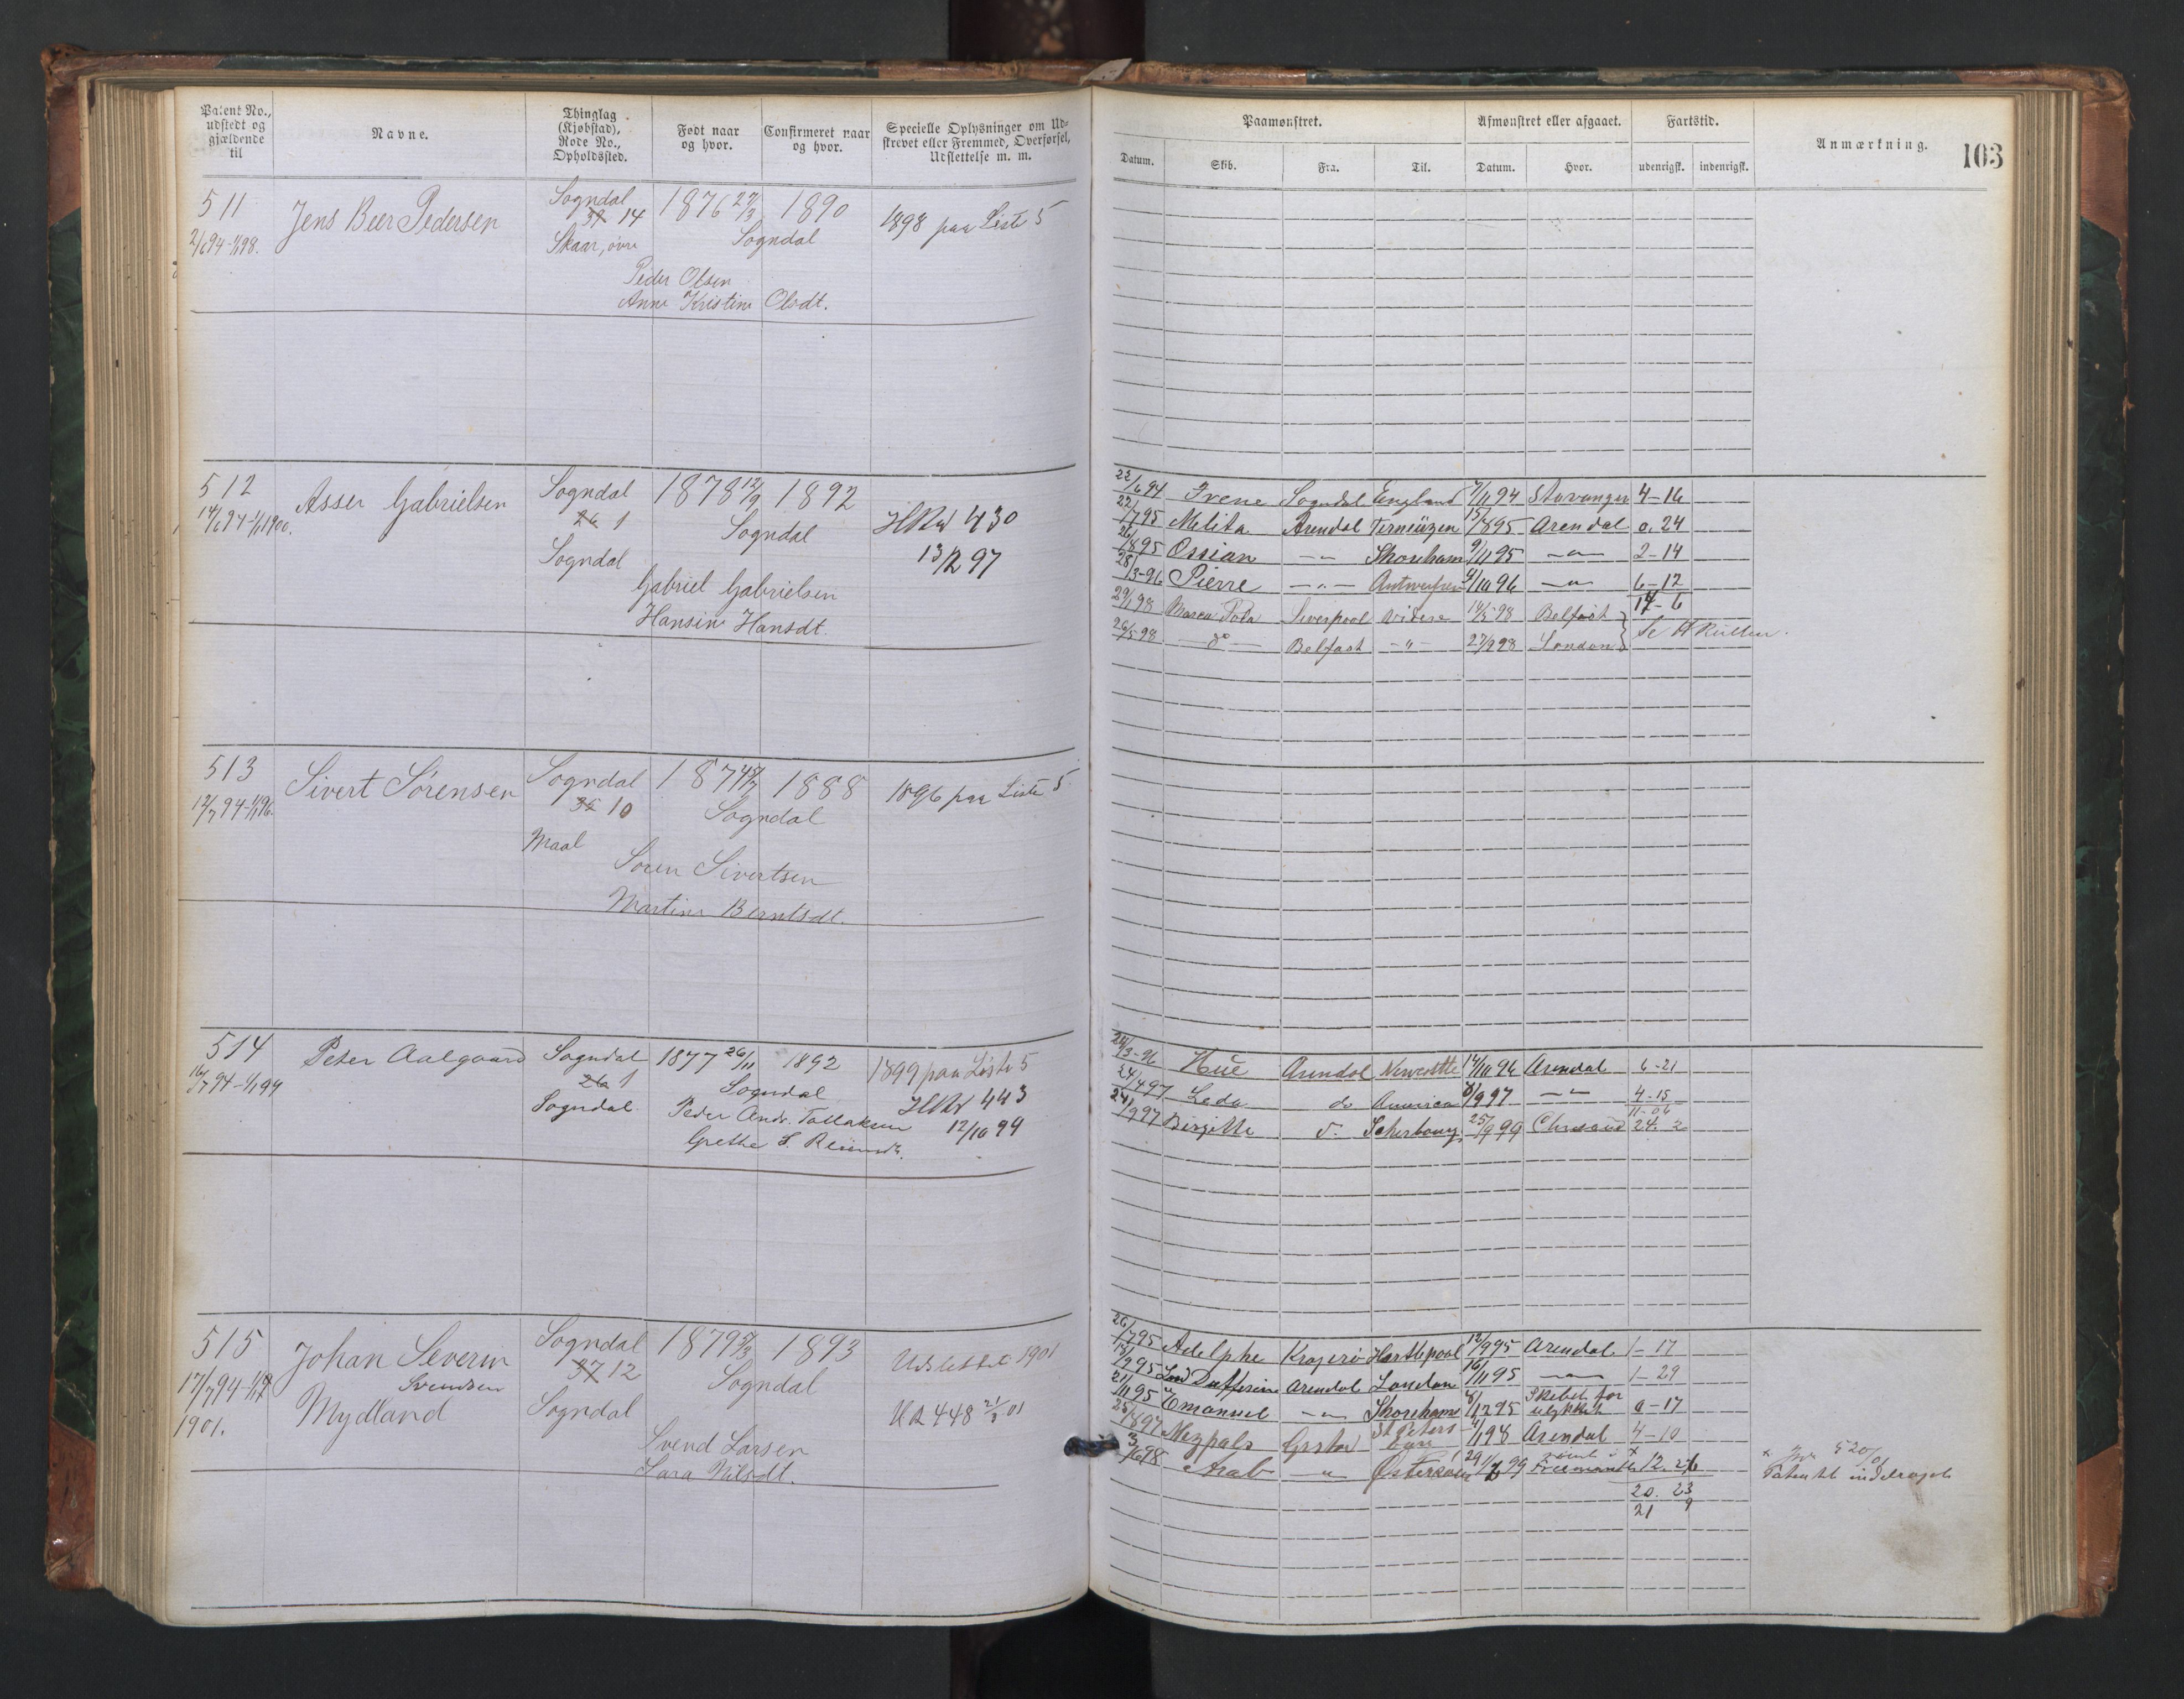 Patent No., udstedt og gjældende til
Navne.
Thinglag (Kjøbstad), Rode No., Opholdssted.
Født naar og hvor.
Confirmeret naar og hvor.
Specielle Oplysninger om Udskrevet eller Fremmed, Overførsel, Udslettelse m. m.
Paamønstret.
Afmønstret eller afgaaet.
Fartstid.
Anmærkning.
103
Datum.
Skib.
Fra.
Til.
Datum.
Hvor.
udenrigsk.
indenrigsk.
511 Jens Beer Pedersen Sogndal 1876 27/3 1890 1898 paa Liste 5
2/6 94-1/1 98. 37 14 Sogndal
Skaar, øvre
Peder Olsen
Anne Kristine Olsdt.
512 Asser Gabrielsen Sogndal 1878 12/9 1892
14/6 94-1/1 1900. 26 1 Sogndal 430
Sogndal 13/2 97
Gabriel Gabrielsen
Hansine Hansdt.
22/6 94 Irene Sogndal England 7/11 94 Stavanger 4-16
22/7 95 Melita Arendal Terneuzen 15/8 95 Arendal 0.24
26/8 95 Ossian -"- Shoreham 9/11 95 -"- 2-14
28/3-96 Pierre -"- Antwerpen /10 96 -"- 6-12
14-6
29/1 98 Marco Polo Liverpool videre 14/5-98 Belfast
26/5 98 do Belfast -"- 27/9 98 London Se H Rullen.
513 Sivert Sørensen Sogndal 1874 1888 1896 paa Liste 5
12/7 94-1/1 96. 10 Sogndal
Maal
Søren Sivertsen
Martine Berntsdt.
514 Peter Aalgaard Sogndal 1877 26/11 1892 1899 paa Liste 5
16/7 94-1/1 99 26 1 Sogndal 443
Sogndal Peder Andr. Tollaksen 12/10 99
Grethe S.
24/3-96 Hue Arendal 14/10 96 Arendal 6-21
24/4 97 Leda do America 8/9 97 -"- 4-15
11-06
24/9 97 Birgitte 25/9 99 24. 2
515 Johan Severin Sogndal 1879 1893 Udslettet 1901
Svendsen
17/7 94-1/1 37 12 Sogndal
1901. Mydland Sogndal 448 21/3 01
Svend Larsen
Sara Nilsdt.
26/7 95 Adelphe Kragerø Hartlepool 12/9 95 Arendal 1-17
18/9 95 Lord Dufferin Arendal London 16/11 95 -"- 1-29
21/11 95 Emanuel -"- Shoreham 8/12 95 Skibet for ulykket 0-17
25/8 97 Grstad St Peters Eure 4/1 98 Arendal 4-10
3/6 98 Arab -"- 29/7 99 Freemantle x 12. 26
20. 23
21 9
x Jvr 520/01
Patentet inddraget